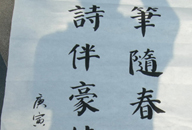 筆隨春
詩伴豪
庚寅